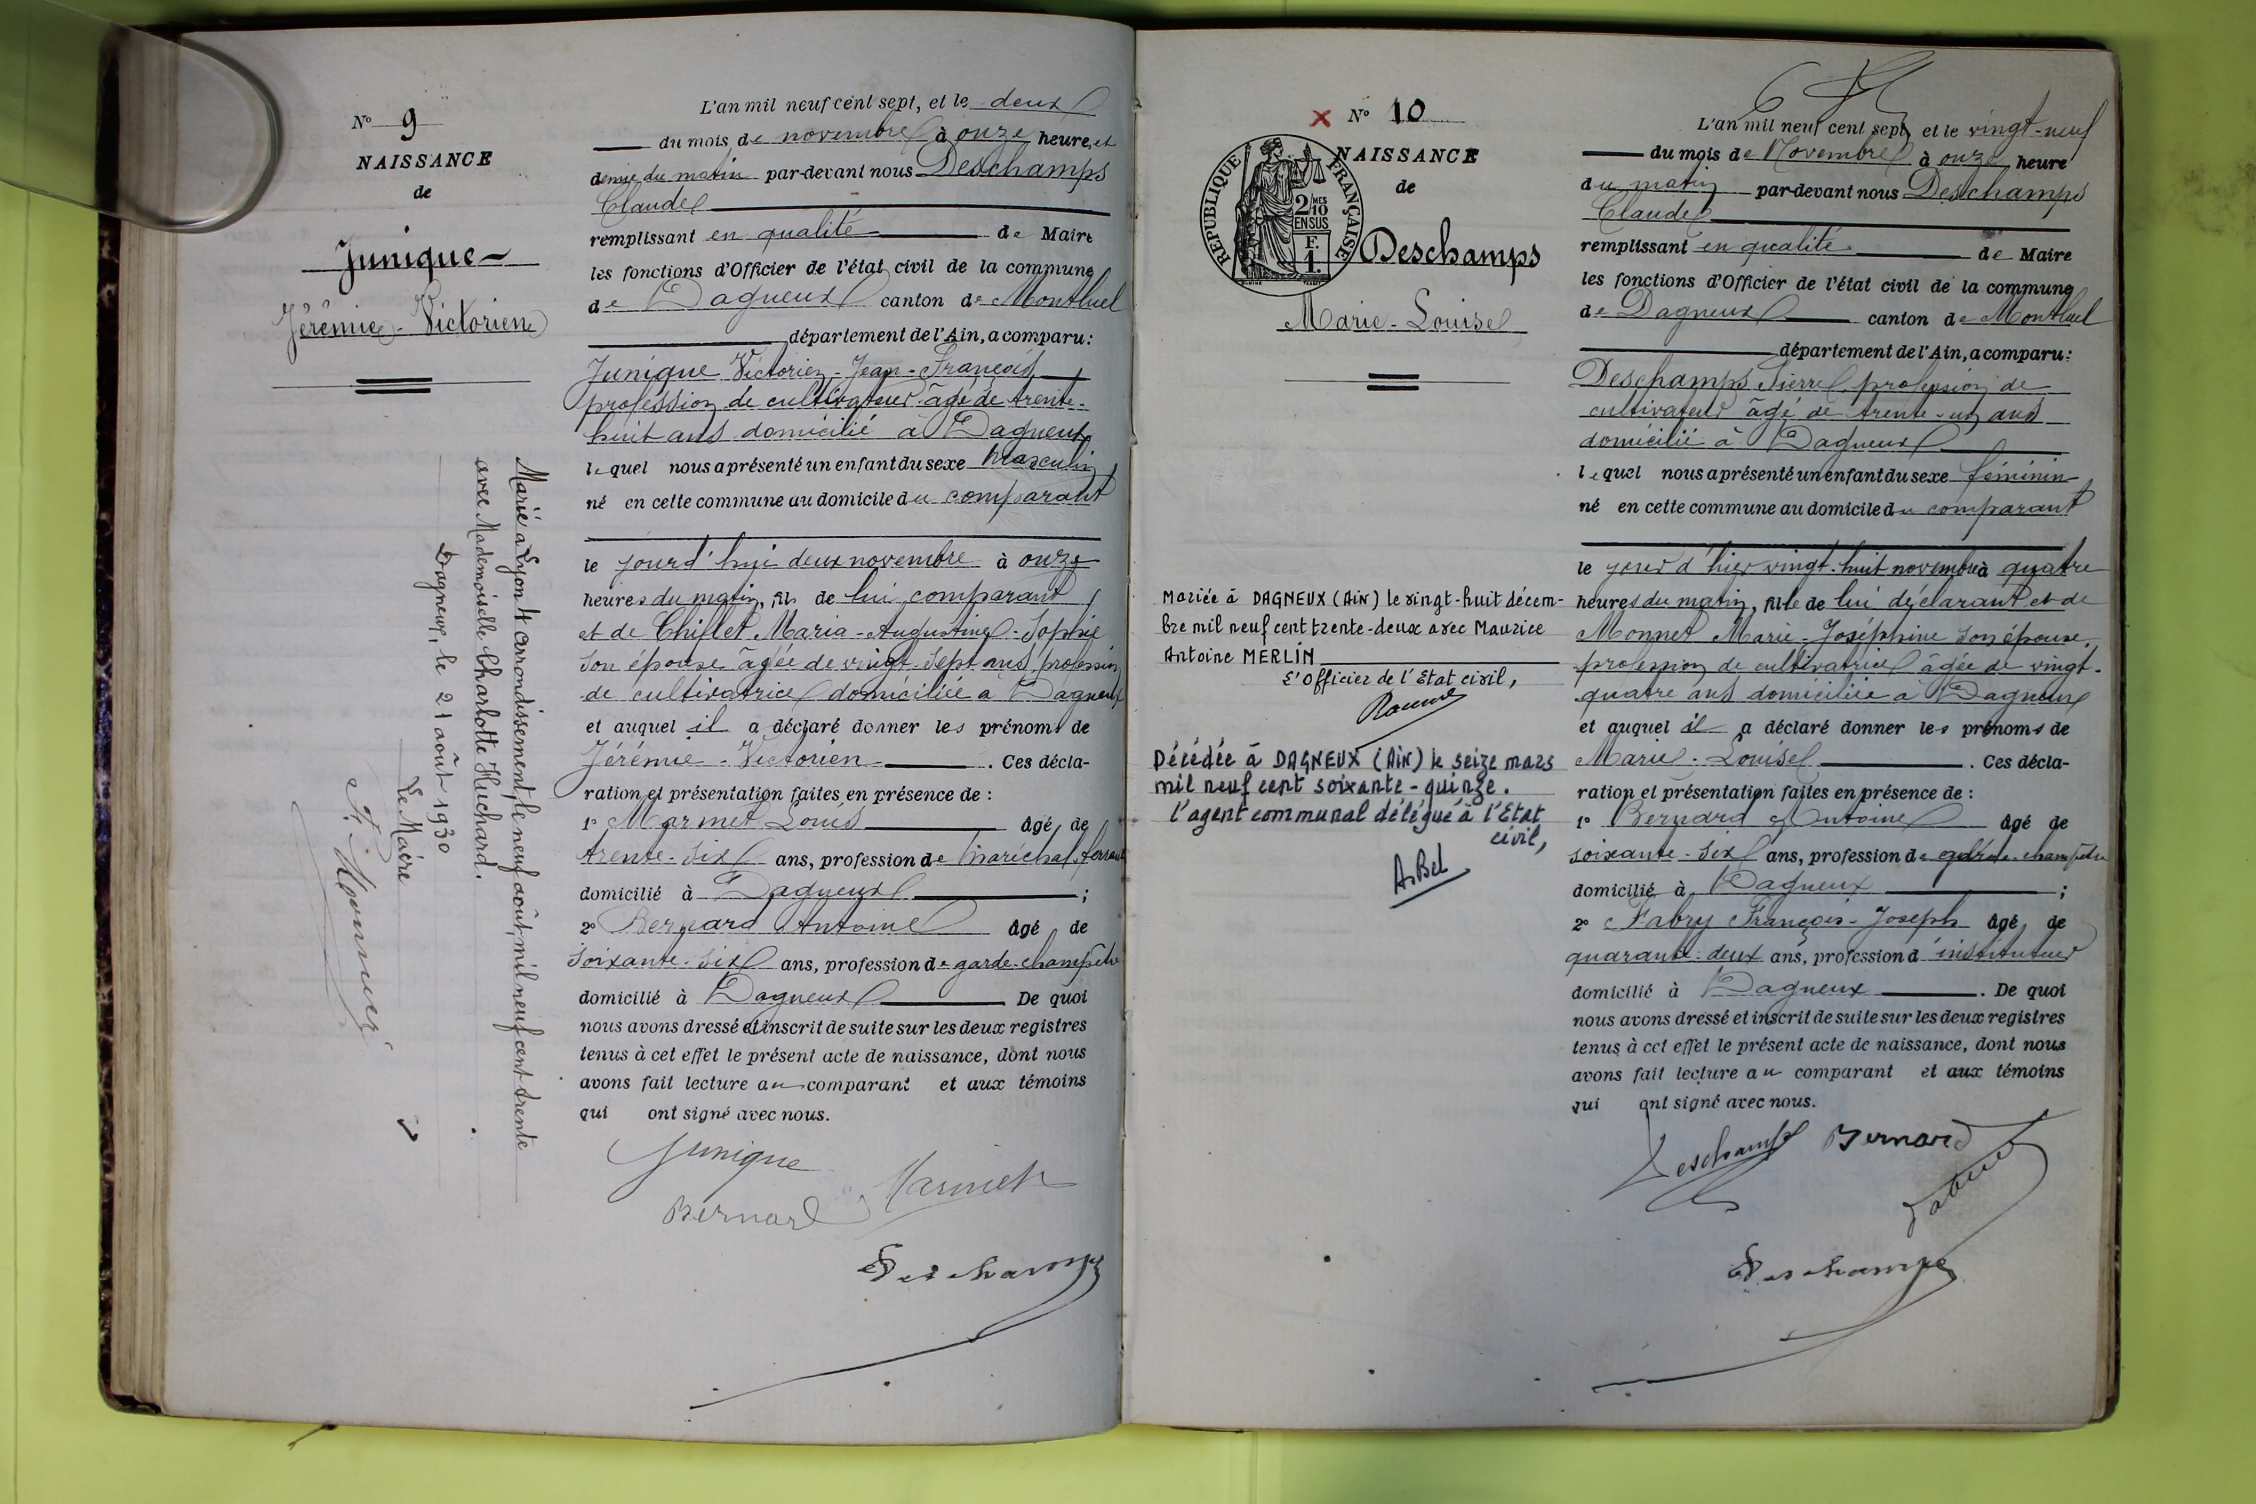 N° 9
NAISSANCE
de
Junique
Jérémie - Victorien
Marié à Lyon 4 arrondissement, le neuf août mil neuf cent trente
avec Mademoiselle Charlotte Huchard.
Dagneux, le 21 août 1930
Le Maire
L'an mil neuf cent sept, et le deux
du mois de novembre à onze heure et
demie du matin par-devant nous Deschamps
Claude
remplissant en qualité de Maire
les fonctions d'Officier de l'état civil de la commune
de Dagneux canton de Montluel
département de l'Ain, a comparu:
Junique Victorien - Jean - François
profession de cultivateur âgé de trente-
huit ans domicilié à Dagneux
lequel nous a présenté un enfant du sexe masculin
né en cette commune au domicile du comparant
le jourd'hui deux novembre à onze
heures du matin, fils de lui comparant
et de Chiflet Maria - Augustine - Sophie
son épouse âgée de vingt-sept ans, profession
de cultivatrice domiciliée à Dagneux
et auquel il a déclaré donner les prénoms de
Jérémie - Victorien. Ces décla-
ration et présentation faites en présence de :
1° Marmet Louis âgé de
trente-six ans, profession de maréchal-ferrant
domicilié à Dagneux ;
2° Bernard Antoine âgé de
soixante-six ans, profession de garde-champêtre
domicilié à Dagneux. De quoi
nous avons dressé et inscrit de suite sur les deux registres
tenus à cet effet le présent acte de naissance, dont nous
avons fait lecture au comparant et aux témoins
qui ont signé avec nous.
Junique
Marmet
Bernard
Deschamps
N° 10
NAISSANCE
de
RÉPUBLIQUE FRANÇAISE
2/10 MES
EN SUS
F.
1.
Deschamps
Marie - Louise
Mariée à DAGNEUX (Ain) le vingt-huit décem-
bre mil neuf cent trente-deux avec Maurice
Antoine MERLIN
L'Officier de l'Etat civil,
Décédée à DAGNEUX (Ain) le seize mars
mil neuf cent soixante-quinze.
l'agent communal délégué à l'Etat
civil,
L'an mil neuf cent sept, et le vingt-neuf
du mois de Novembre à onze heure
du matin par-devant nous Deschamps
Claude
remplissant en qualité de Maire
les fonctions d'Officier de l'état civil de la commune
de Dagneux canton de Montluel
département de l'Ain, a comparu:
Deschamps Pierre profession de
cultivateur âgé de trente-un ans
domicilié à Dagneux
lequel nous a présenté un enfant du sexe féminin
né en cette commune au domicile du comparant
le jour d'hier vingt-huit novembre à quatre
heures du matin, fille de lui déclarant et de
Monnet Marie - Joséphine son épouse,
profession de cultivatrice âgée de vingt-
quatre ans domiciliée à Dagneux
et auquel il a déclaré donner les prénoms de
Marie - Louise. Ces décla-
ration et présentation faites en présence de :
1° Bernard Antoine âgé de
soixante-six ans, profession de garde-champêtre
domicilié à Dagneux ;
2° Fabry François - Joseph âgé de
quarante-deux ans, profession d'instituteur
domicilié à Dagneux. De quoi
nous avons dressé et inscrit de suite sur les deux registres
tenus à cet effet le présent acte de naissance, dont nous
avons fait lecture au comparant et aux témoins
qui ont signé avec nous.
Deschamps Bernard
Deschamps